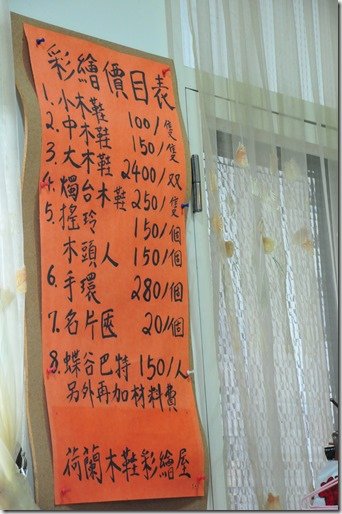 彩繪價目表
1. 小木鞋 100/隻
2. 中木鞋 150/隻
3. 大木鞋 2400/双
4. 燭台木鞋 250/隻
5. 搖玲 150/個
木頭人 150/個
6. 手環 280/個
7. 名片匣 20/個
8. 蝶谷巴特 150/人
另外再加材料費
荷蘭木鞋彩繪屋